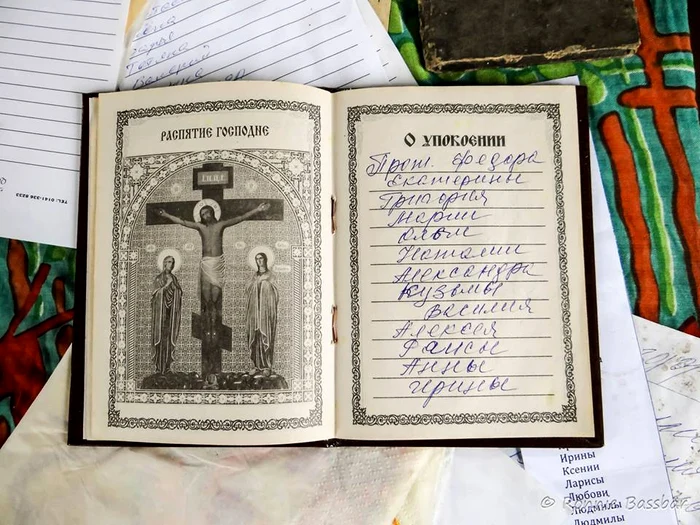 Валерий
TEL: 0141-336 8833
РАСПЯТИЕ ГОСПОДНЕ
О УПОКОЕНИИ
Прот. Федора
Екатерины
Григория
Марии
Ольги
Наталии
Александра
Кузьмы
Василия
Алексея
Раисы
Анны
Ирины
Ирины
Ксении
Ларисы
Любови
Людмилы
Людмилы
© Ronnie Bassbär